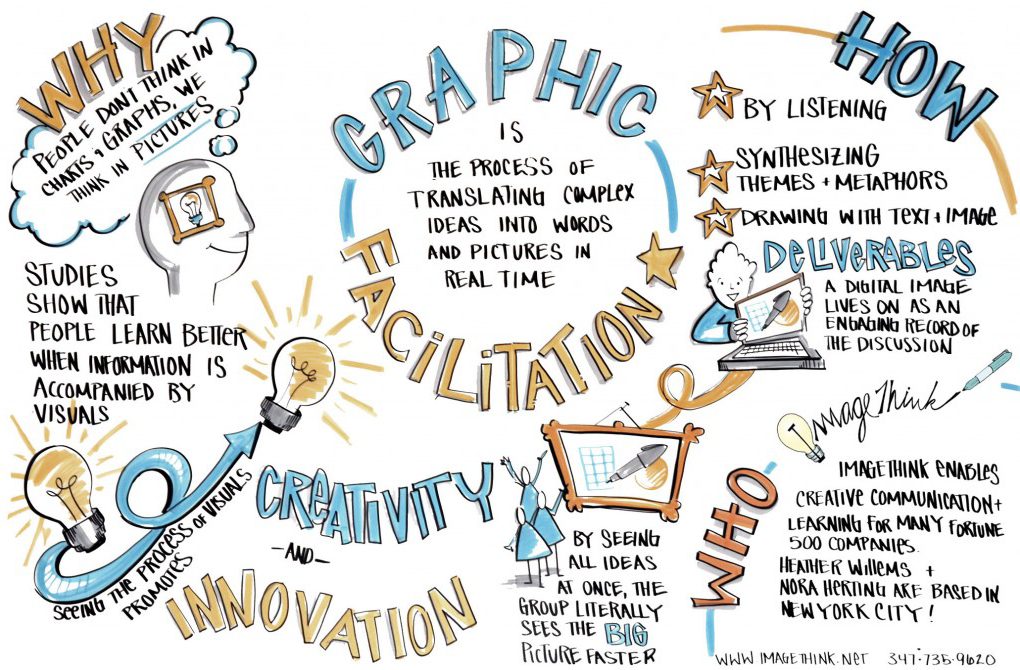 WHY
PEOPLE DON'T THINK IN
CHARTS & GRAPHS, WE
THINK IN PICTURES
STUDIES
SHOW THAT
PEOPLE LEARN BETTER
WHEN INFORMATION IS
ACCOMPANIED BY
VISUALS
SEEING THE PROCESS OF VISUALS
PROMOTES
CREATIVITY
-AND-
INNOVATION
GRAPHIC
IS
THE PROCESS OF
TRANSLATING COMPLEX
IDEAS INTO WORDS
AND PICTURES IN
REAL TIME
FACILITATION
BY SEEING
ALL IDEAS
AT ONCE, THE
GROUP LITERALLY
SEES THE BIG
PICTURE FASTER
HOW
BY LISTENING
SYNTHESIZING
THEMES + METAPHORS
DRAWING WITH TEXT + IMAGE
DELIVERABLES
A DIGITAL IMAGE
LIVES ON AS AN
ENGAGING RECORD OF
THE DISCUSSION
ImageThink
WHO
IMAGETHINK ENABLES
CREATIVE COMMUNICATION +
LEARNING FOR MANY FORTUNE
500 COMPANIES.
HEATHER WILLEMS +
NORA HERTING ARE BASED IN
NEW YORK CITY!
WWW IMAGETHINK.NET 347.735.9620